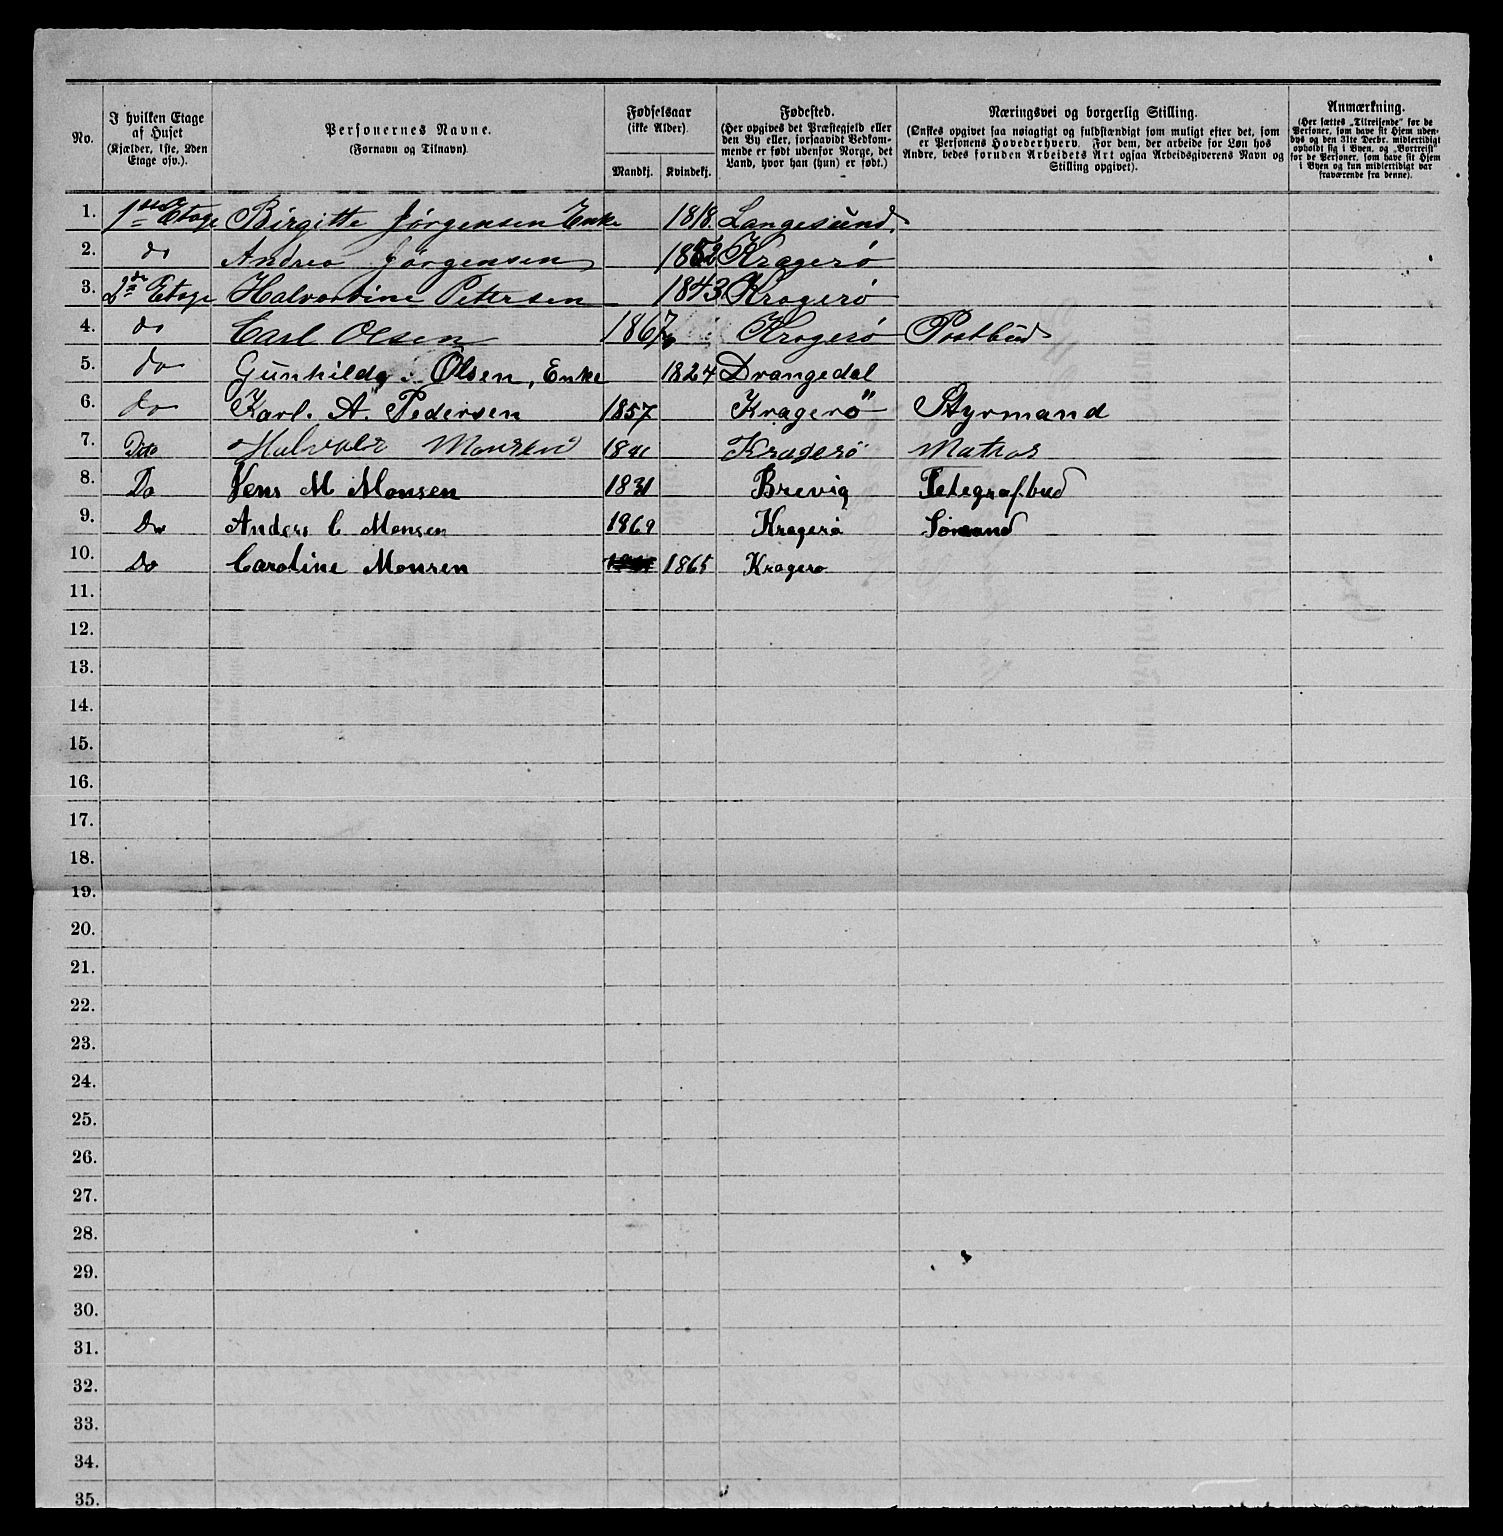 No.
I hvilken Etage
af Huset
(Kjælder, 1ste, 2den
Etage osv.).
Personernes Navne.
(Fornavn og Tilnavn).
Fødselsaar
(ikke Alder).
Mandkj. Kvindekj.
Fødested.
(Her opgives det Præstegjeld eller
den By eller, forsaavidt Vedkom-
mende er født udenfor Norge, det
Land, hvor han (hun) er født.)
Næringsvei og borgerlig Stilling.
(Ønskes opgivet saa nøiagtigt og fuldstændigt som muligt efter det, som
er Personens Hovederhverv. For dem, der arbeide for Løn hos
Andre, bedes foruden Arbeidets Art ogsaa Arbeidsgiverens Navn og
Stilling opgivet).
Anmærkning.
(Her sættes „Tilreisende" for de
Personer, som have sit Hjem uden-
bys og den 31te Decbr. midlertidigt
opholdt sig i Byen, og „Bortreist"
for de Personer, som have sit Hjem
i Byen og kun midlertidigt var
fraværende fra denne).
1. 1ste Etage Birgitte Jørgensen Enke 1818. Langesund.
2. do Andrea Jørgensen 1852 Kragerø
3. 2de Etage Halvordine Petersen 1843 Kragerø
4. do Carl Olsen 1867 Kragerø Postbud
5. do Gunhilda Olsen, Enke 1824 Drangedal
6. do Karl. A. Pedersen 1857 Kragerø" Styrmand
7. Dito Monsen Kragerø Matros
8. Do Jens M Monsen 1831 Brevig Telegrafbud
9. Do Anders C Monsen 1869 Kragerø Sømand
10. Do Caroline Monsen 1865 Kragerø
11.
12.
13.
14.
15.
16.
17.
18.
19.
20.
21.
22.
23.
24.
25.
26.
27.
28.
29.
30.
31.
32.
33.
34.
35.